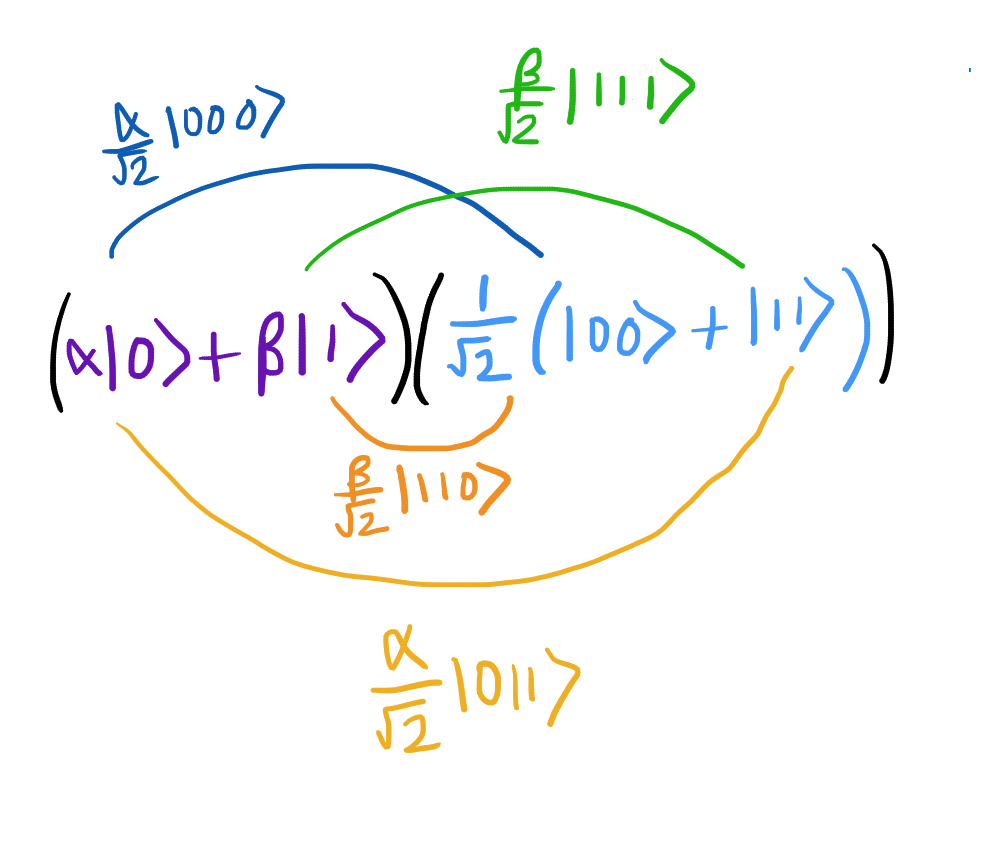 α/√2 |000⟩
β/√2 |111⟩
(α|0⟩+β|1⟩)(1/√2(|00⟩+|11⟩))
β/√2 |110⟩
α/√2 |011⟩